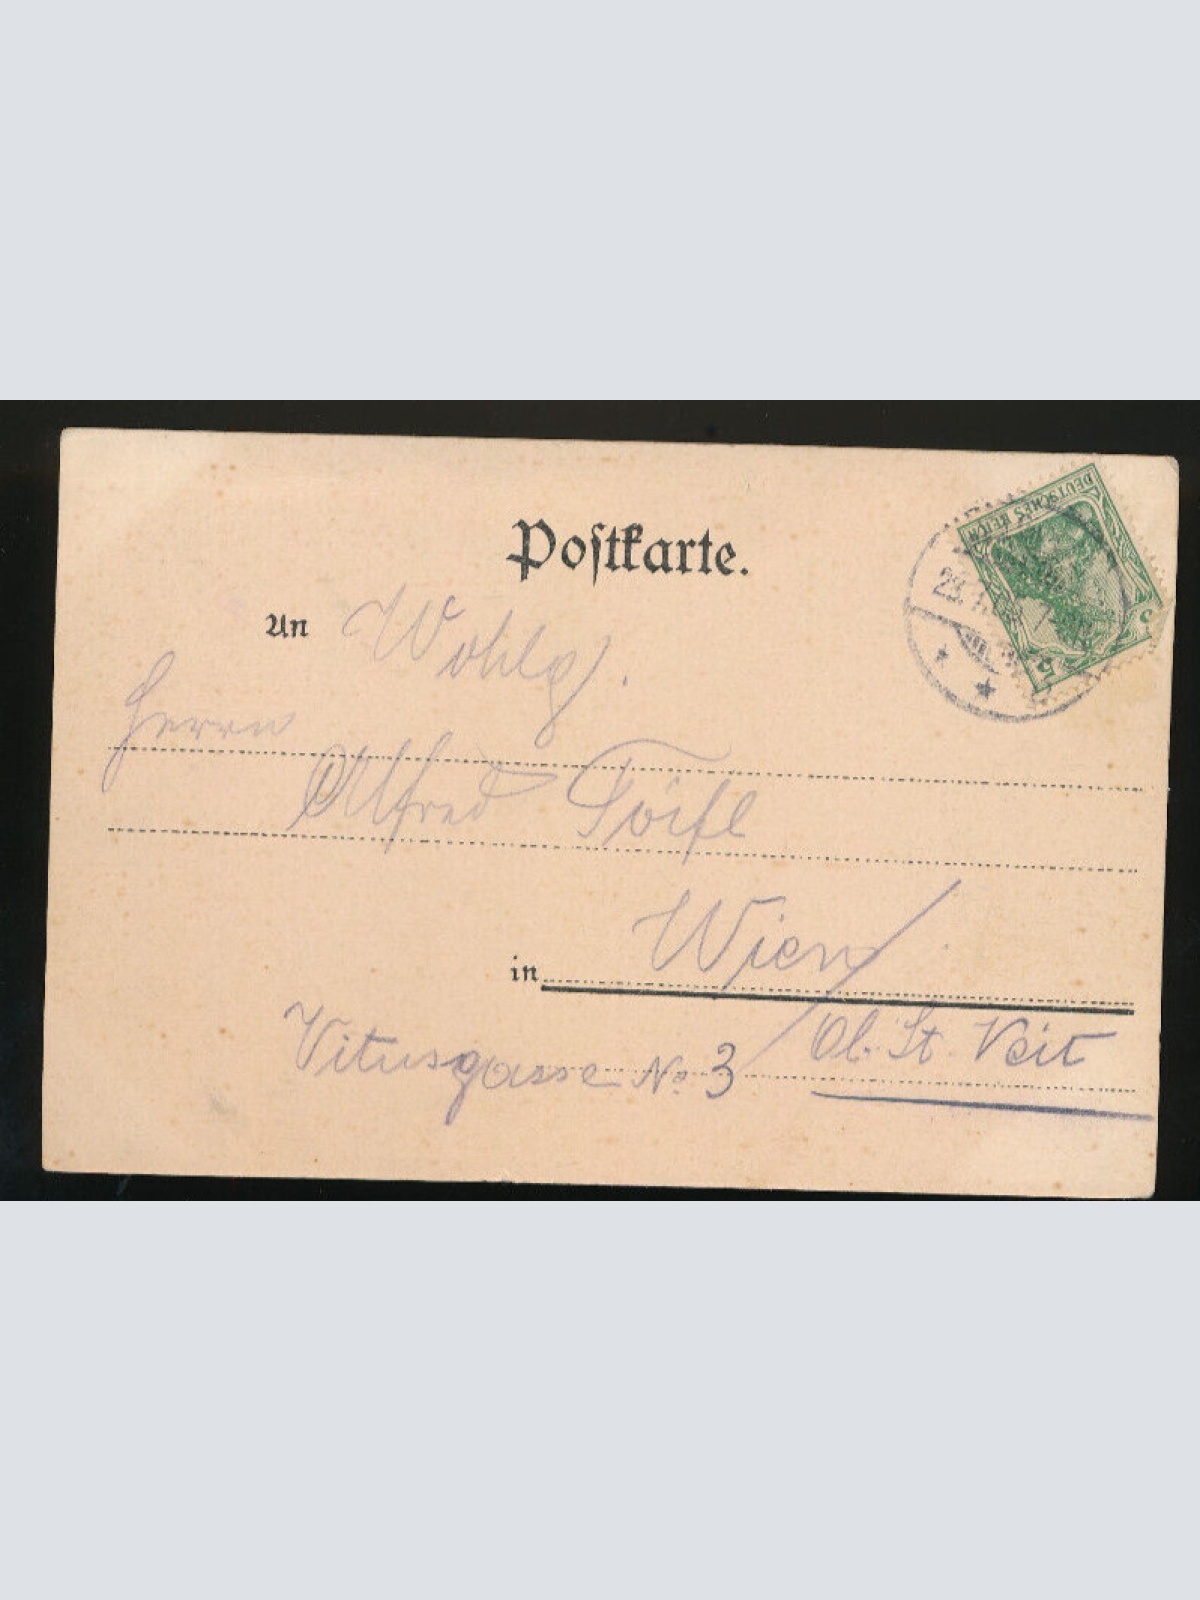 Postkarte.
DEUTSCHES REICH
5 5
23.
An Wohlg.
Herrn
Alfred
in Wien
Ob. St. Veit
Vitusgasse No 3